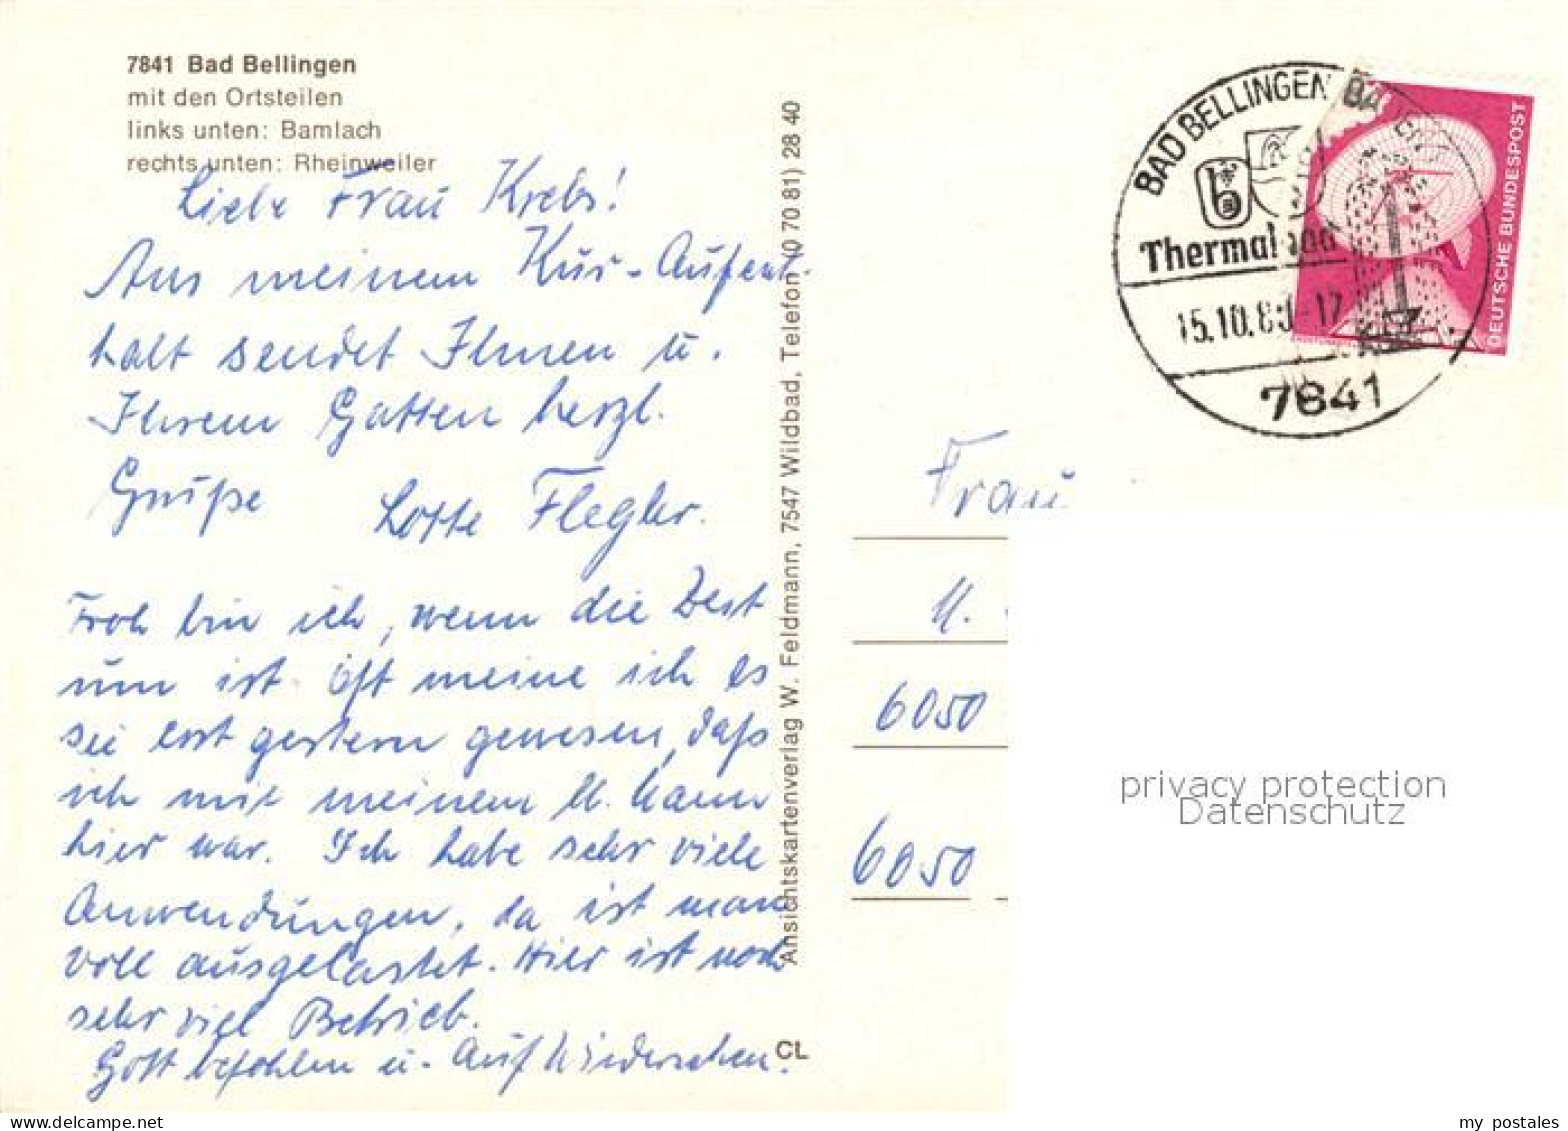 7841 Bad Bellingen
mit den Ortsteilen
links unten: Bamlach
rechts unten: Rheinweiler
Liebe Frau Krebs!
Aus meinem Kur-Aufent-
halt sendet Ihnen u.
Ihrem Gatten herzl.
Grüße Lotte Flegler.
Froh bin ich, wenn die Zeit
um ist. Oft meine ich es
sei erst gestern gewesen, daß
ich mit meinem M. Mann
hier war. Ich habe sehr viele
Anwendungen, da ist man
voll ausgelastet. Hier ist noch
sehr viel Betrieb.
Gott befohlen u. Auf Wiedersehen.
CL
Ansichtskartenverlag W. Feldmann, 7547 Wildbad, Telefon (0 70 81) 28 40
BAD BELLINGEN
Thermalbad
15.10.80-17
7841
DEUTSCHE BUNDESPOST
Frau
M.
6050
6050
privacy protection
Datenschutz
my postales